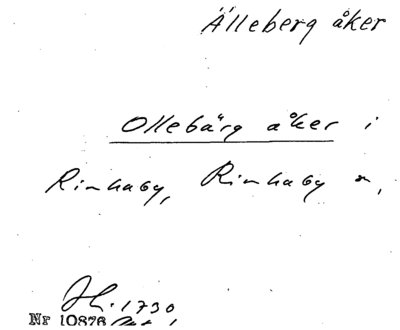 Älleberg åker
Ollebärg åker i
Rinkaby, Rinkaby sn,
1730
Nr 10876